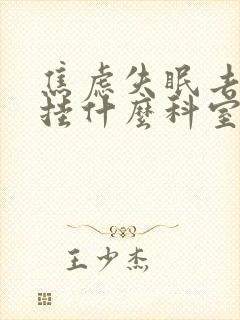 焦虑失眠去
挂什麼科室
王少杰